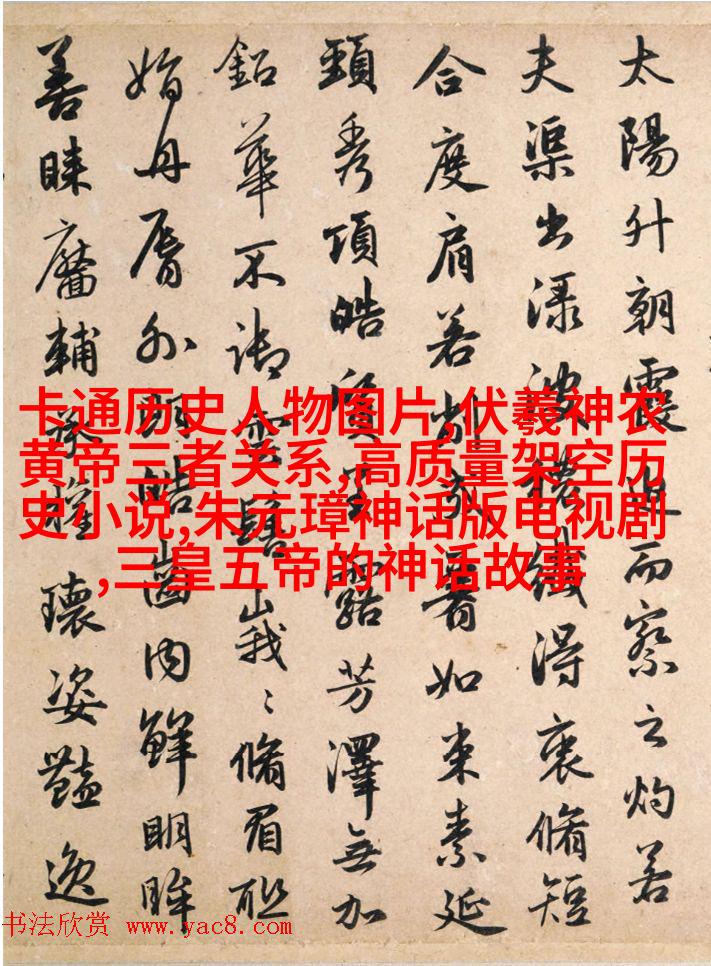 太陽升朝霞而察之灼若
夫渠出渌波襛纖得衷脩短
合度肩若削成如束素延
頸秀項皓質呈露芳澤無加
鉛華不御雲髻峩〻脩眉聯
娟丹脣外朗皓齒内鮮明眸
善睞靨輔承權瓌姿豔逸
卡通历史人物图片,伏羲神农
黄帝三者关系,高质量架空历
史小说,朱元璋神话版电视剧
,三皇五帝的神话故事
书法欣赏 www.yac8.com